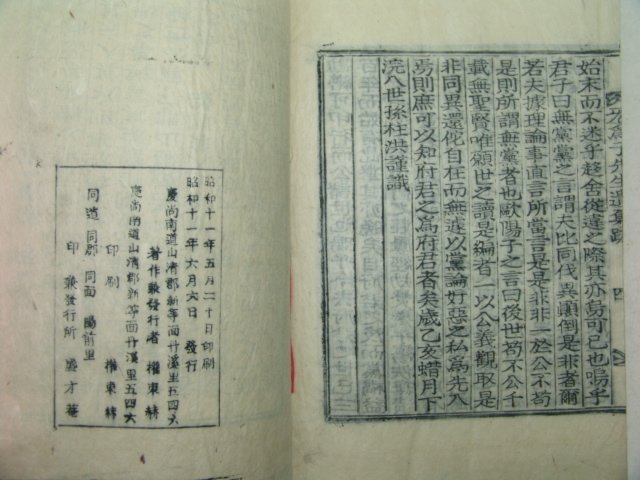 始末而不迷乎趍舍從違之際其亦烏可已也嗚乎
君子曰無黨黨之言謂夫比同伐異顚倒是非者爾
若夫據理論事直言所當言是是非非一於公不苟
是則所謂無黨者也歐陽子之言曰後世苟不公千
載無聖賢唯願世之讀是編者一以公義觀取是
非同異還佗自在而無遽以黨論好惡之私爲先入
焉則庶可以知府君之爲府君者矣歲乙亥蜡月下
浣八世孫柱洪謹識
昭和十一年五月二十日印刷
昭和十一年六月六日發行
慶尚南道山淸郡新等面丹溪里五四六
著作兼發行者 權東赫
慶尚南道山淸郡新等面丹溪里五四六
印刷 權東赫
同道同郡同面陽前里
印兼發行所